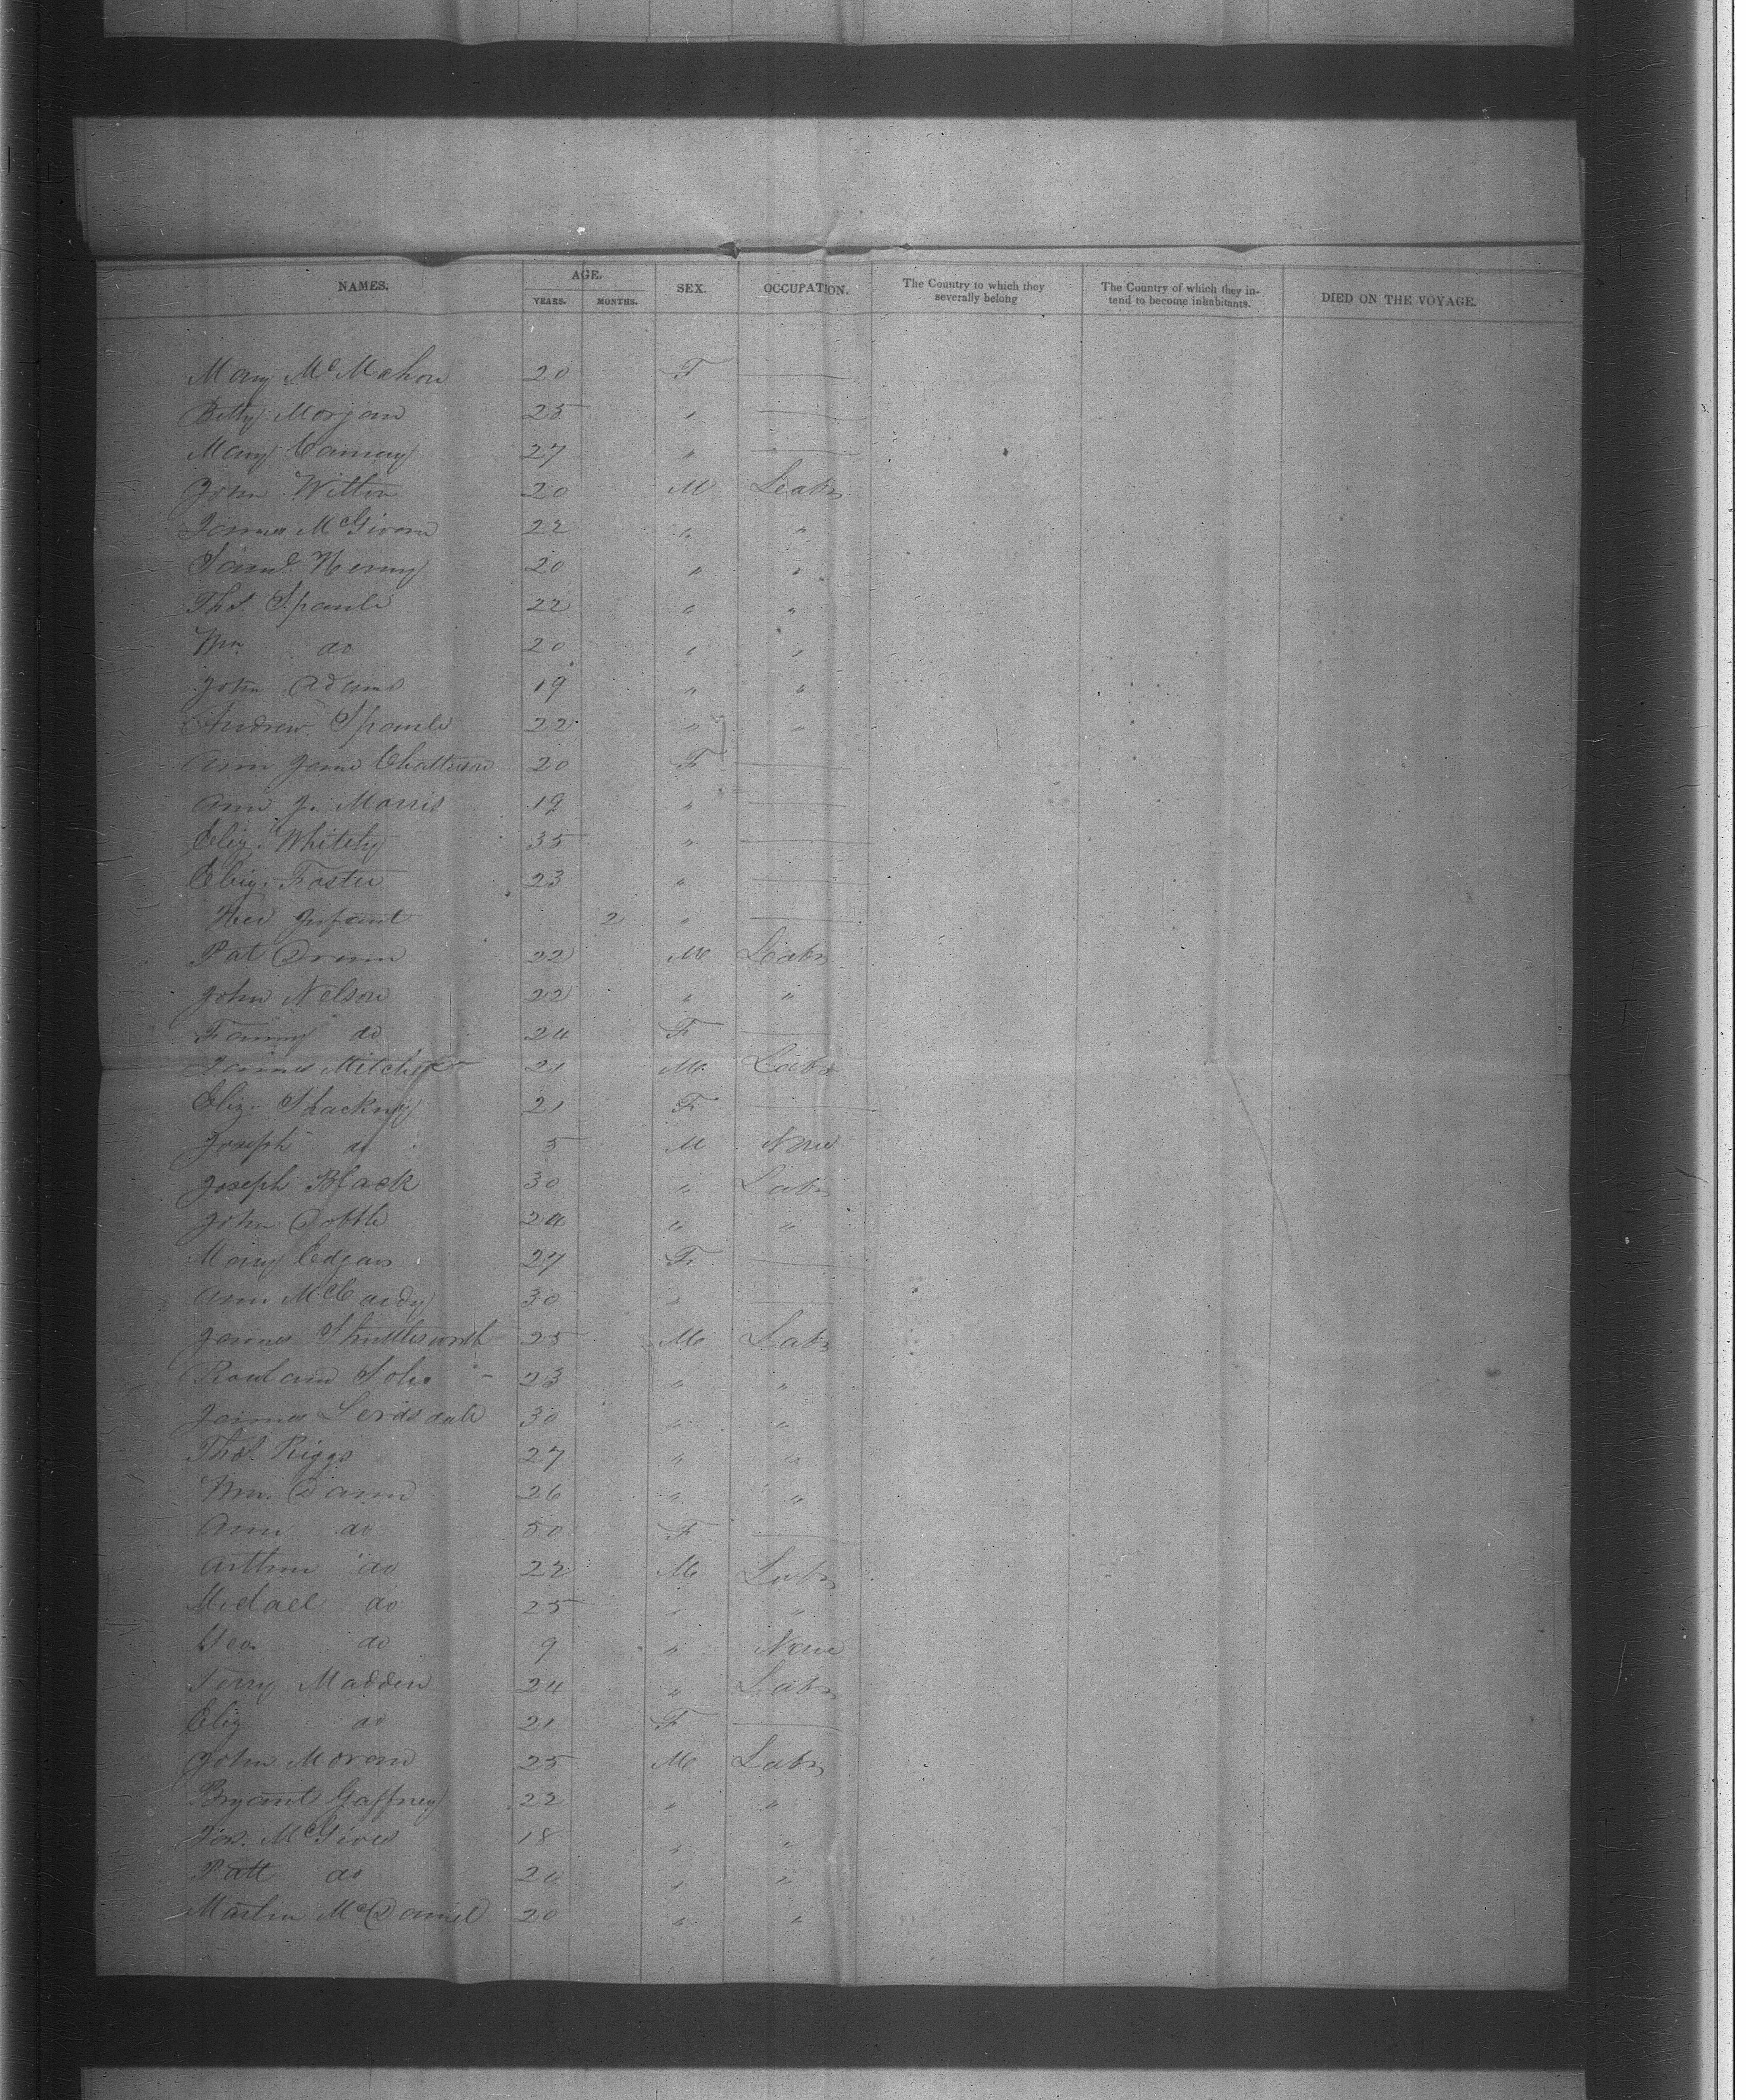 NAMES. AGE. YEARS. MONTHS. SEX. OCCUPATION. The Country to which they severally belong The Country of which they intend to become inhabitants. DIED ON THE VOYAGE.
Mary McMahon 20 F
Betty Morgan 25 "
Mary 27 "
John Wilton 20 M Labr
James McGivern 22 " "
Saml. Henry 20 " "
Thos. Spaule 22 " "
Wm. do 20 " "
John Adams 19 " "
Andrew Spaule 22 " "
Ann Jane Chatterson 20 F
Ann J. Morris 19 "
Eliz. Whitely 35 "
Eliz. Foster 23 "
Her Infant 2 "
Pat 22 M Labr
John Nelson 22 " "
Fanny do 24 F
James Mitchell 21 M Labr
Eliz. 21 F
Joseph do 5 M None
Joseph Black 30 " Labr
John 24 " "
Mary Edgar 27 F
Ann 30 "
James Shuttleworth 25 M Labr
Rowland 23 " "
James 30 " "
Thos. Riggs 27 " "
Wm. Dann 26 " "
Ann do 50 F
Arthur do 22 M Labr
Michael do 25 " "
Geo. do 9 " None
Terry Madden 24 " Labr
Eliz do 21 F
John Moran 25 M Labr
Bryant Gaffney 22 " "
Jas. 18 " "
Patt do 20 " "
Martin McDaniel 20 " "